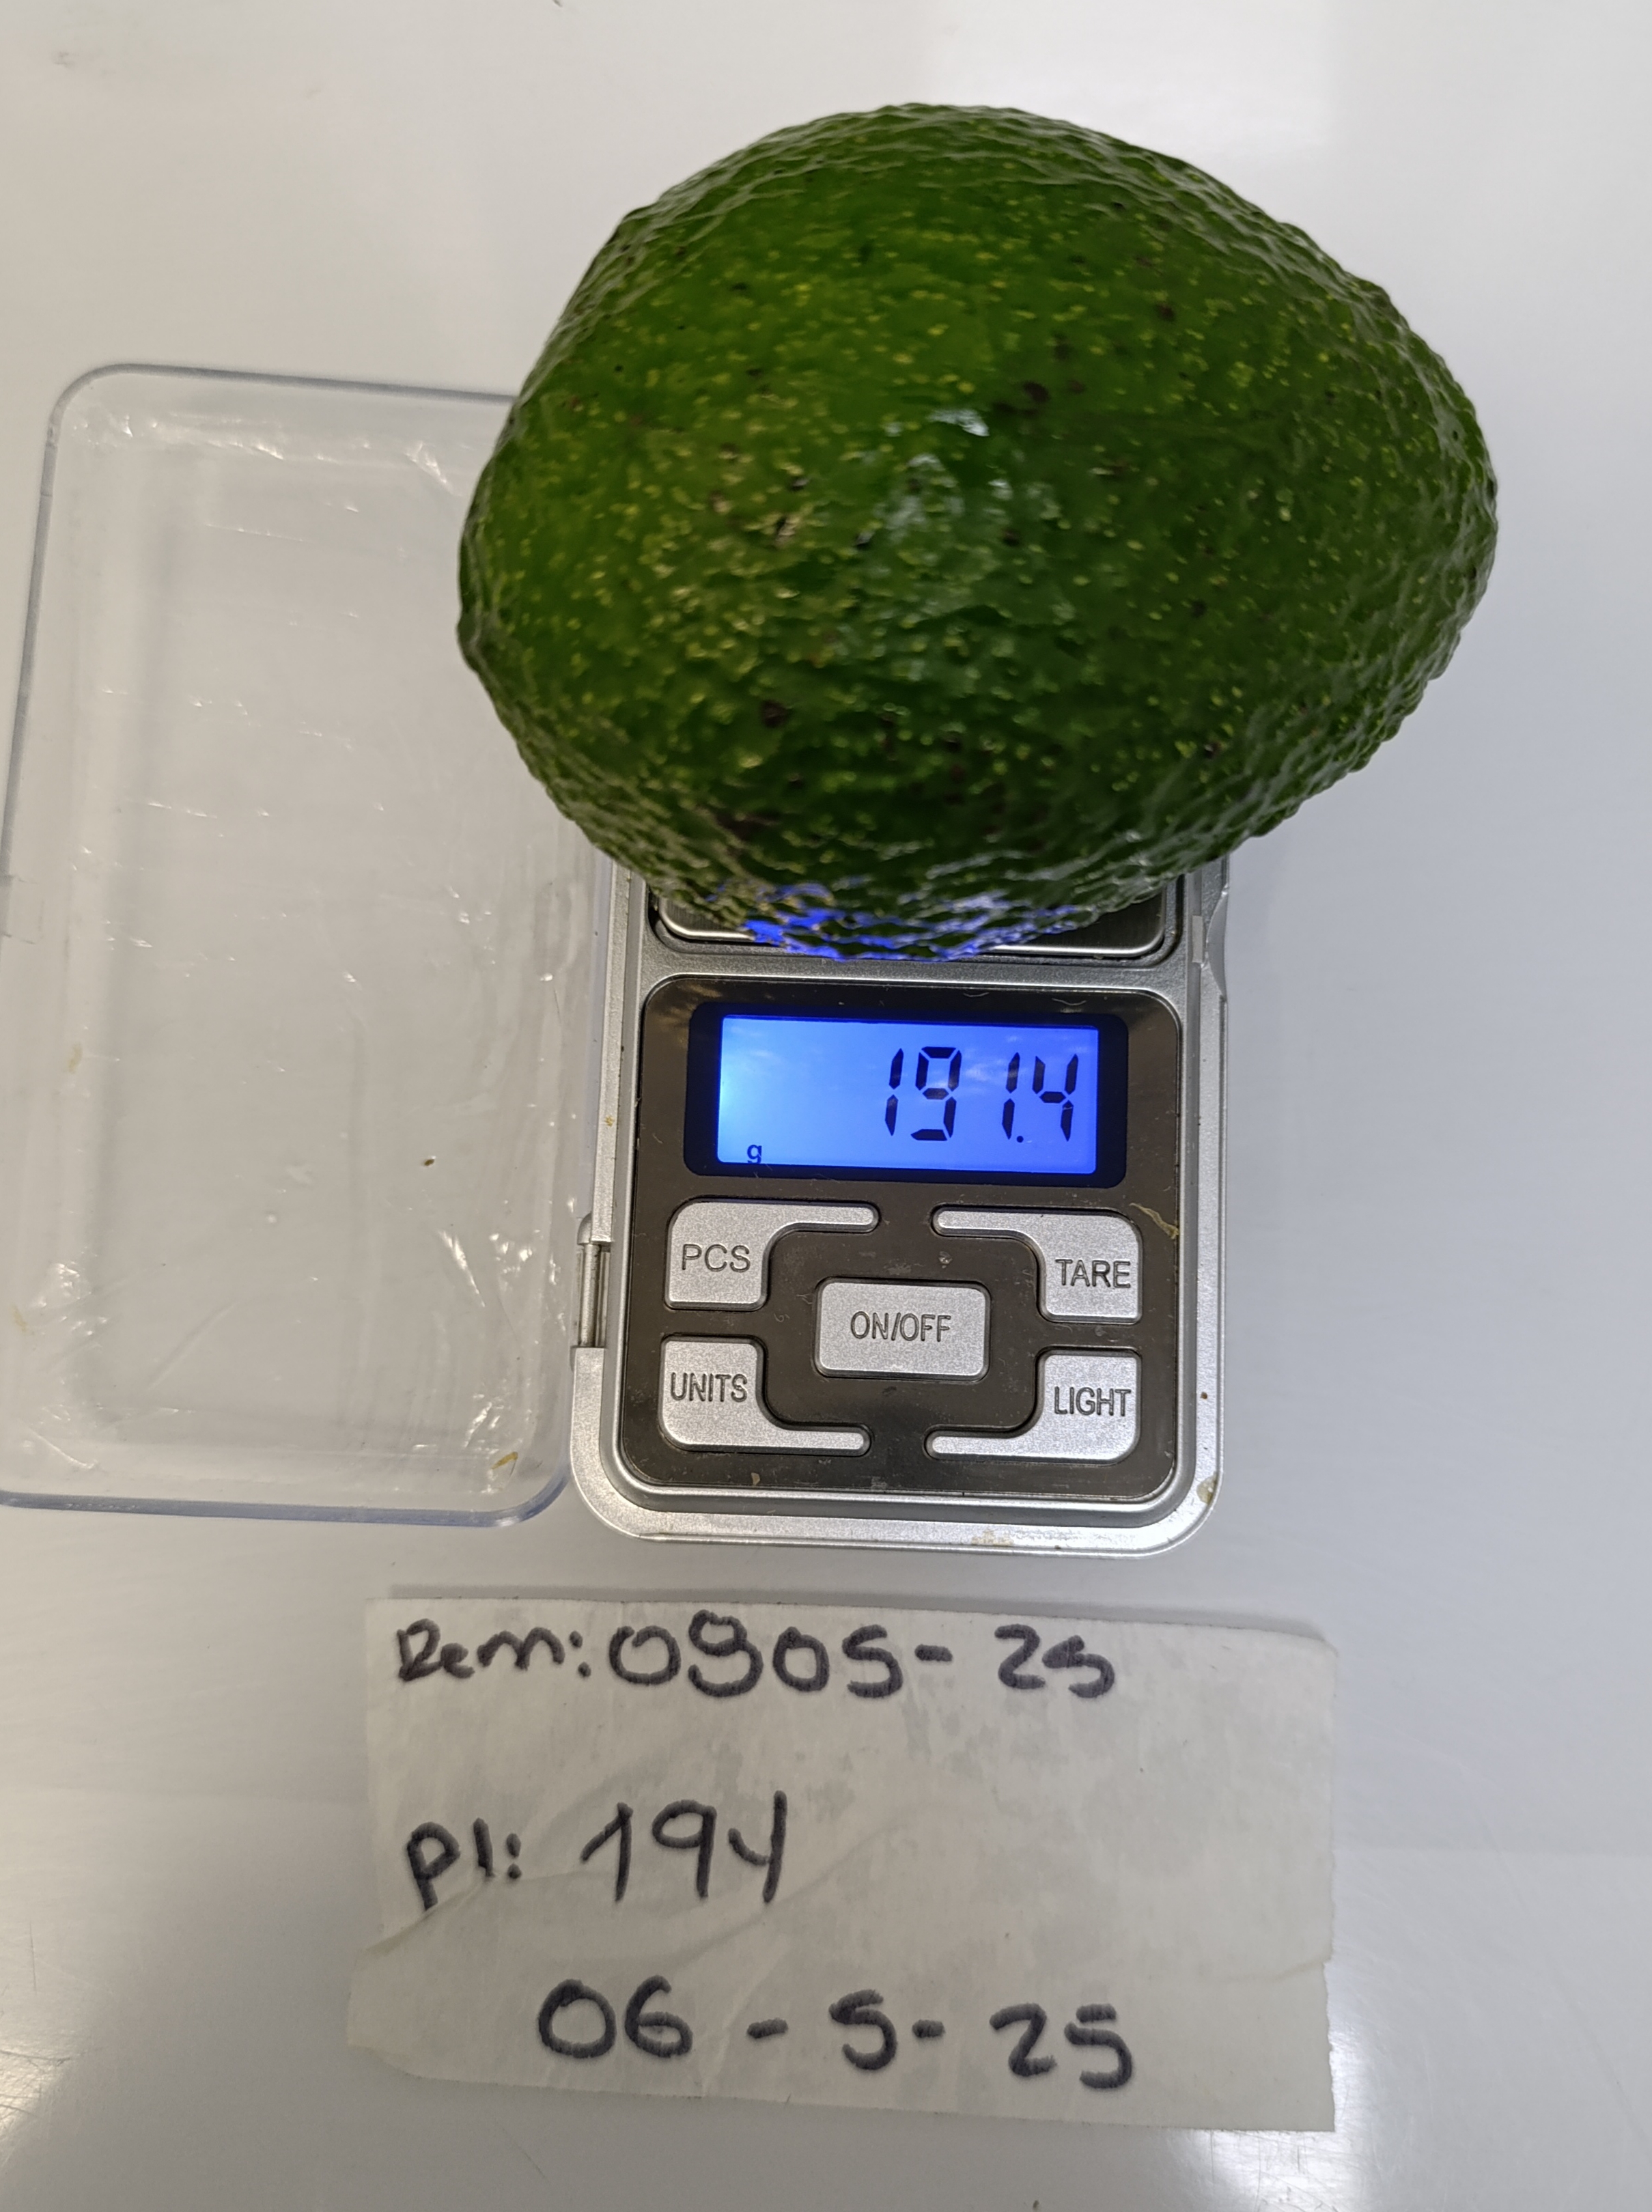 191.4
g
PCS
TARE
ON/OFF
UNITS
LIGHT
Rem: 0905-25
Pl: 194
06-5-25